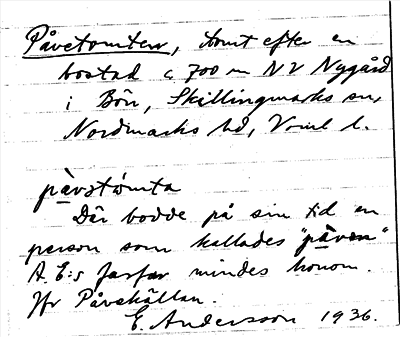 Påvetomten, tomt efter en
bostad c 700 m NV Nygård
i Bön, Skillingmarks sn,
Nordmarks hd, Vrml l.
påvstômta
Där bodde på sin tid en
person som kallades "påven"
A. E:s farfar mindes honom.
Jfr Påvekällan.
E. Andersson 1936.